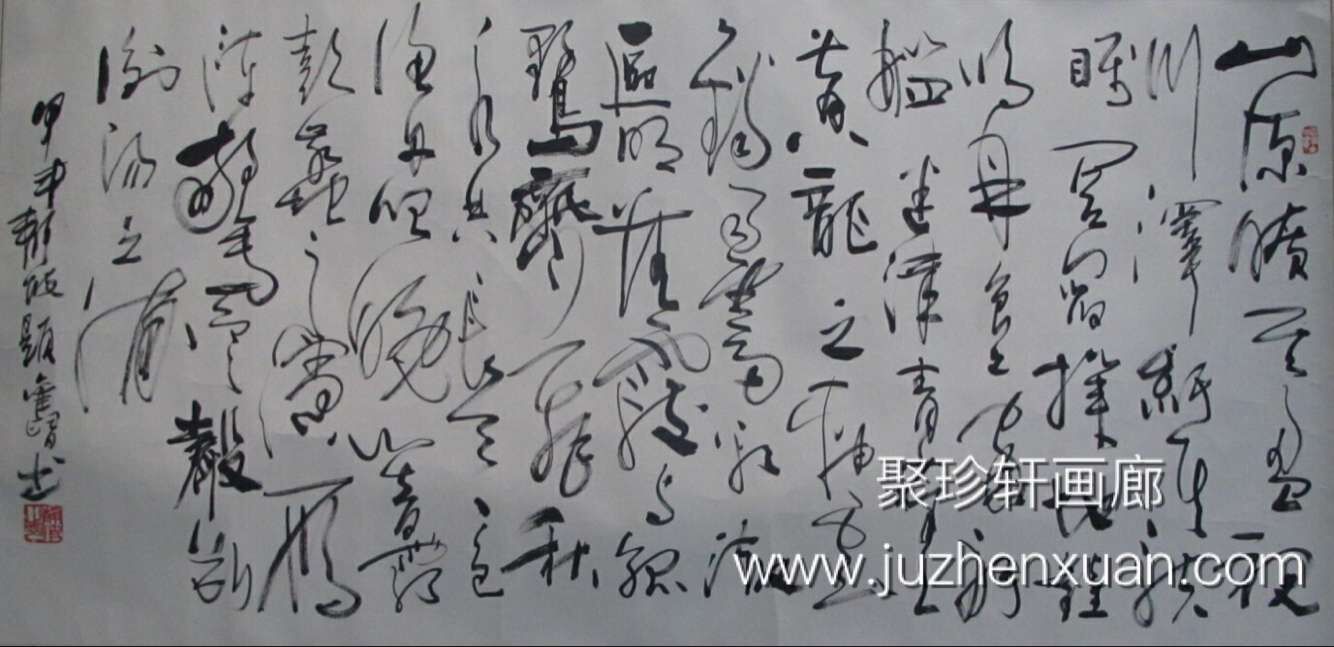 山原曠其盈視
川澤紆其駭
矚閭閻撲地鐘
鳴鼎食之家舸
艦迷津青雀
黃龍之軸虹
銷雨霽彩徹
區明落霞与孤
鶩齊飛秋
水共長天一色
漁舟唱晚響窮
彭蠡之濱雁
陣驚寒聲斷
衡陽之浦
甲申
聚珍轩画廊
www.juzhenxuan.com